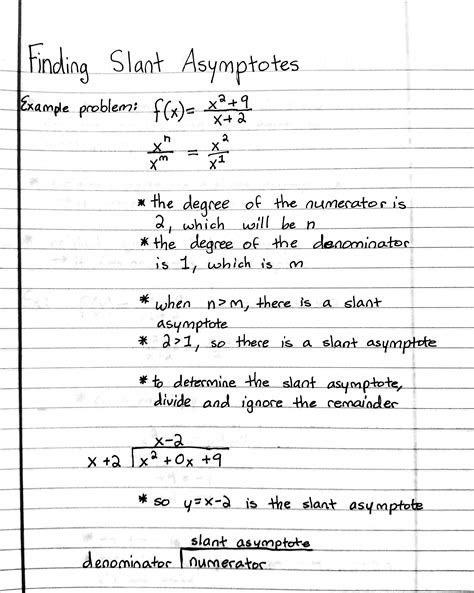 Finding Slant Asymptotes
Example problem: f(x) = x²+9 / x+2
xⁿ / xᵐ = x² / x¹
* the degree of the numerator is
2, which will be n
* the degree of the denominator
is 1, which is m
* when n>m, there is a slant
asymptote
* 2>1, so there is a slant asymptote
* to determine the slant asymptote,
divide and ignore the remainder
x-2
x+2 | x² + 0x + 9
* so y=x-2 is the slant asymptote
slant asymptote
denominator | numerator